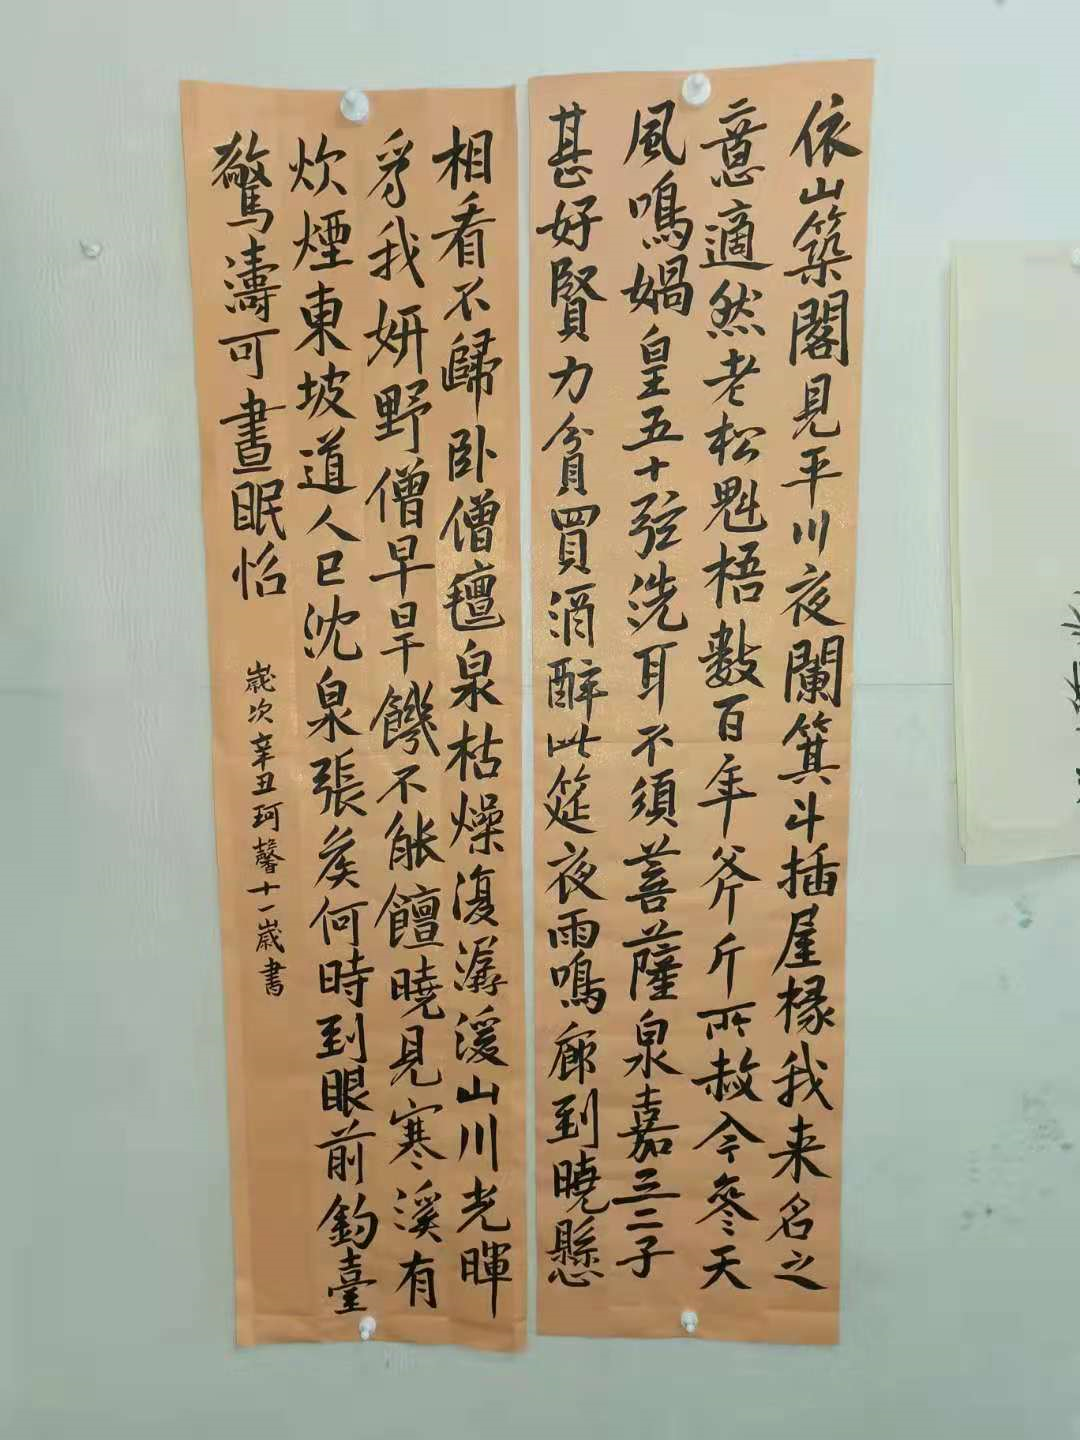 依山築閣見平川夜闌箕斗插屋椽我来名之
意適然老松魁梧數百年斧斤所赦今參天
風鳴媧皇五十弦洗耳不須菩薩泉嘉三二子
甚好賢力貧買酒醉此筵夜雨鳴廊到曉懸
相看不歸卧僧氈泉枯燥復潺湲山川光暉
爲我妍野僧早旱饑不能饘曉見寒溪有
炊煙東坡道人已沈泉張矦何時到眼前釣臺
驚濤可晝眠怡
歲次辛丑珂馨十一歲書